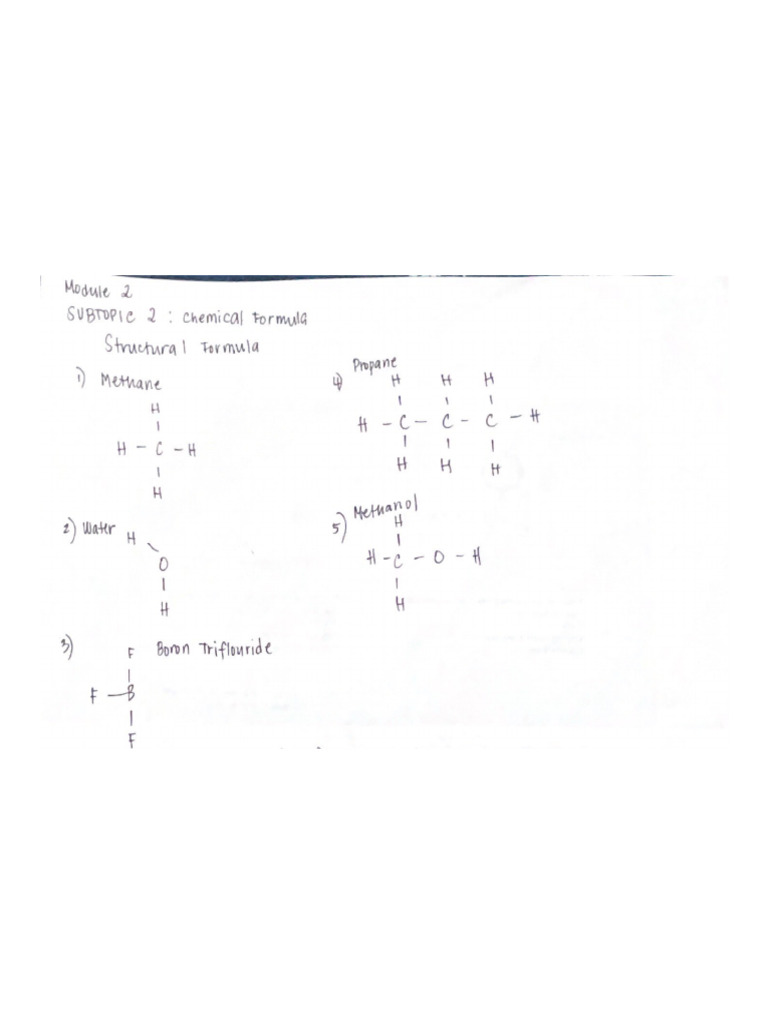 Module 2
SUBTOPIC 2 : Chemical Formula
Structural Formula
1) Methane
H
H - C - H
H
2) Water
H
O
H
3) Boron Triflouride
F
F - B
F
4) Propane
H H H
H - C - C - C - H
H H H
5) Methanol
H
H - C - O - H
H